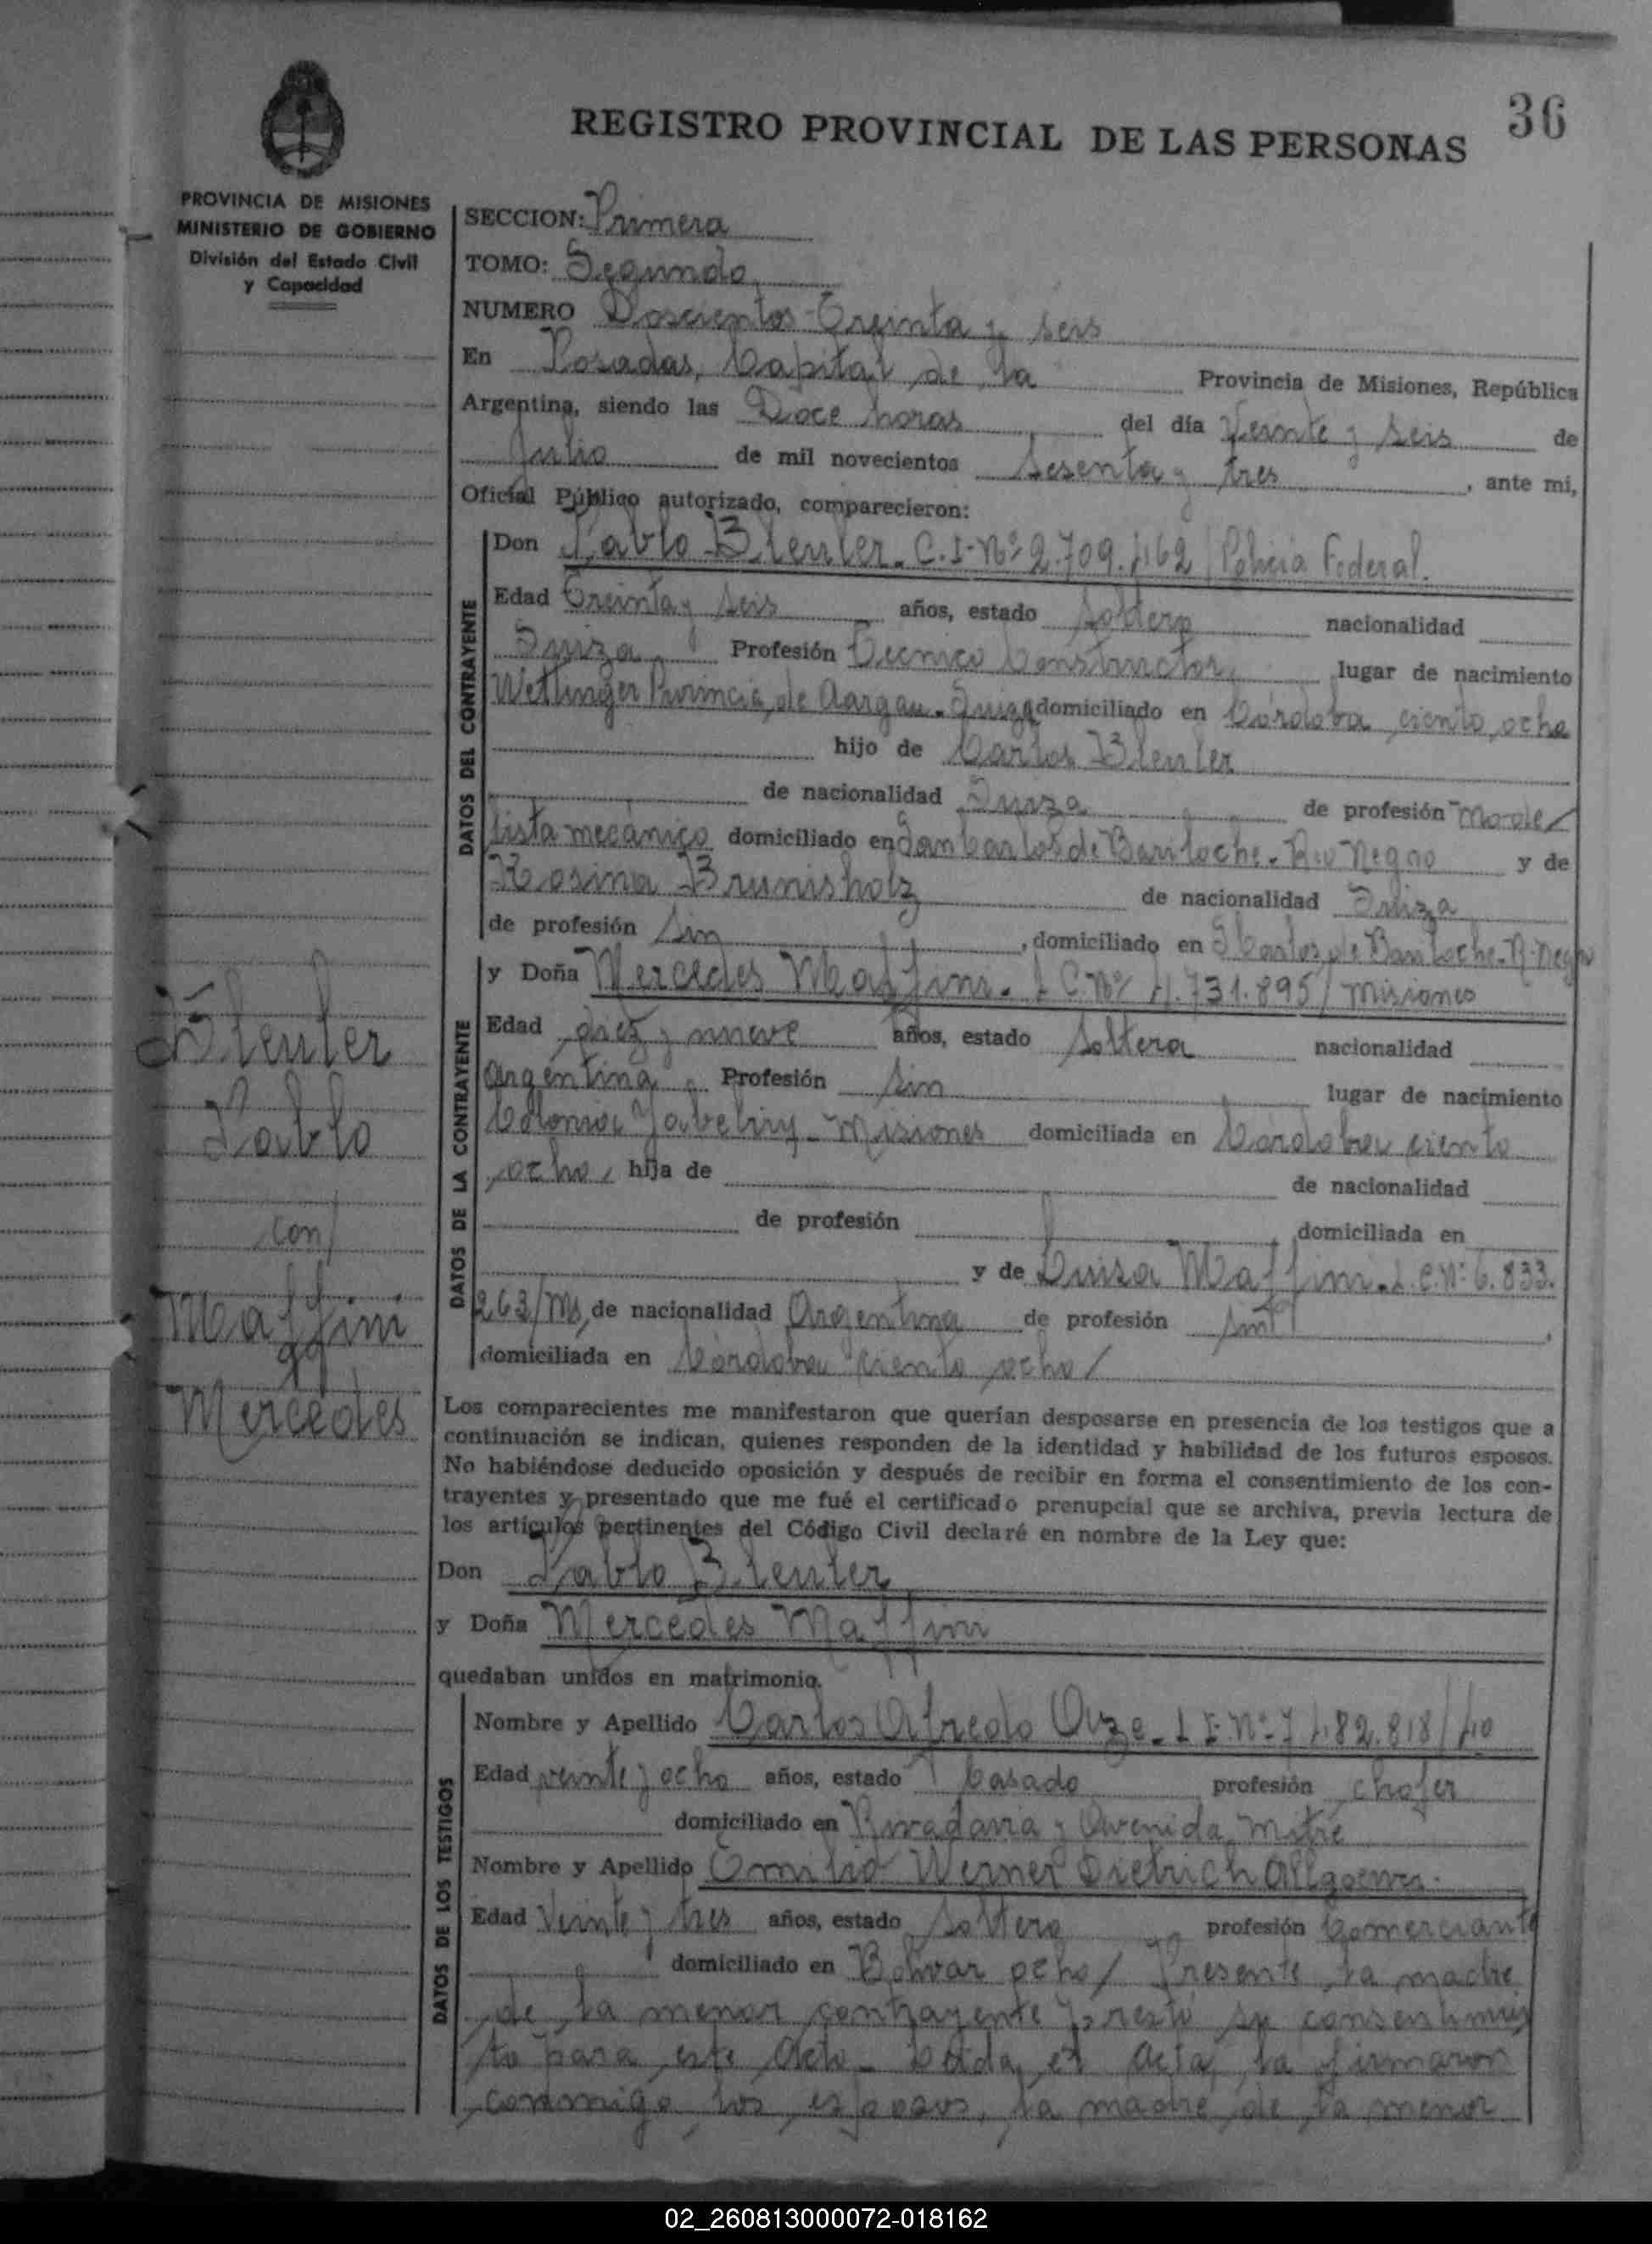 36
REGISTRO PROVINCIAL DE LAS PERSONAS
PROVINCIA DE MISIONES
MINISTERIO DE GOBIERNO
División del Estado Civil
y Capacidad
SECCION: Primera
TOMO: Segundo
NUMERO Doscientos Treinta y seis
En Posadas, Capital de la Provincia de Misiones, República
Argentina, siendo las Doce horas del día Veinte y seis de
Julio de mil novecientos sesenta y tres, ante mi,
Oficial Público autorizado, comparecieron:
DATOS DEL CONTRAYENTE
Don Pablo Bleuler. C.I. Nº 2.709.462/Policia Federal.
Edad Treinta y seis años, estado soltero nacionalidad
Suiza. Profesión Tecnico Constructor, lugar de nacimiento
Wettinger Provincia de Aargau. Suiza domiciliado en Córdoba ciento ocho
hijo de Carlos Bleuler
de nacionalidad Suiza de profesión Mode/
lista mecánico domiciliado en San Carlos de Bariloche. Rio Negro y de
Rosina Brunisholz de nacionalidad Suiza
de profesión sin, domiciliado en S. Carlos de Bariloche. R. Negro
Bleuler
Pablo
con
Maffini
Mercedes
DATOS DE LA CONTRAYENTE
y Doña Mercedes Maffini. L C. Nº 4.731.895/Misiones
Edad diez y nueve años, estado soltera nacionalidad
argentina. Profesión sin lugar de nacimiento
Colonia Yabebiry - Misiones domiciliada en Córdoba ciento
ocho, hija de de nacionalidad
de profesión domiciliada en
y de Luisa Maffini. L.C. Nº 6.833.
263/Ms, de nacionalidad Argentina de profesión sin,
domiciliada en Córdoba ciento ocho/
Los comparecientes me manifestaron que querían desposarse en presencia de los testigos que a
continuación se indican, quienes responden de la identidad y habilidad de los futuros esposos.
No habiéndose deducido oposición y después de recibir en forma el consentimiento de los con-
trayentes y presentado que me fué el certificado prenupcial que se archiva, previa lectura de
los artículos pertinentes del Código Civil declaré en nombre de la Ley que:
Don Pablo Bleuler
y Doña Mercedes Maffini
quedaban unidos en matrimonio.
DATOS DE LOS TESTIGOS
Nombre y Apellido Carlos Alfredo Oze. L I. Nº 7.482.818/40
Edad veinte y ocho años, estado Casado profesión chofer
domiciliado en Rivadavia y Avenida Mitre
Nombre y Apellido Emilio Werner Dietrich
Edad Veinte y tres años, estado soltero profesión Comerciante
domiciliado en Bolivar ocho/ Presente la madre
de la menor contrayente prestó su consentimien
to para este Acto. Leida el acta, la firmaron
conmigo los esposos, la madre de la menor
02_260813000072-018162